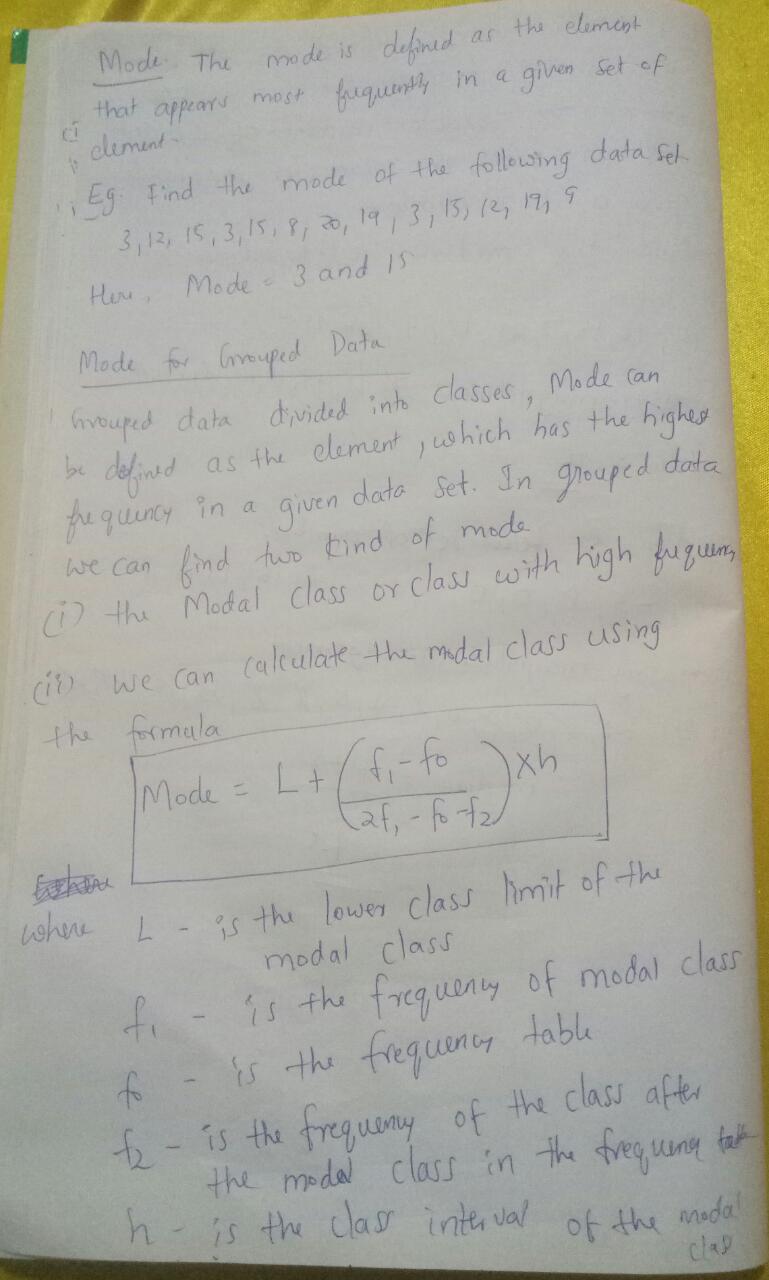 Mode. The mode is defined as the element
that appears most frequently in a given set of
element.
Eg. Find the mode of the following data set
3, 12, 15, 3, 15, 8, 20, 19, 3, 15, 12, 19, 9
Here, Mode = 3 and 15
Mode for Grouped Data
Grouped data divided into classes, Mode can
be defined as the element, which has the highest
frequency in a given data set. In grouped data
we can find two kind of mode
(i) the Modal class or class with high frequency
(ii) we can calculate the modal class using
the formula
Mode = L + (f₁ - f₀ / 2f₁ - f₀ - f₂) × h
where L - is the lower class limit of the
modal class
f₁ - is the frequency of modal class
f₀ - is the frequency table
f₂ - is the frequency of the class after
the modal class in the frequency table
h - is the class interval of the modal
class